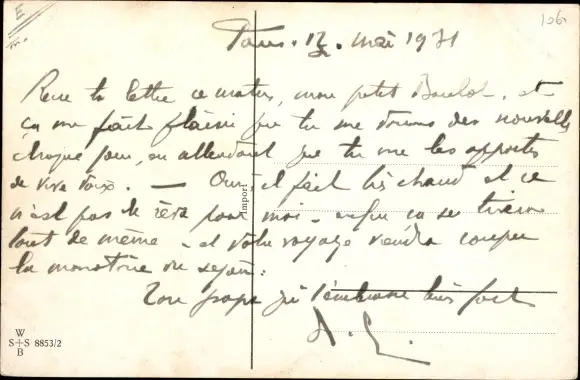 E
m.
106
Paris. 12. mai 1931
Reçu ta lettre ce matin, mon petit Boulot, et
ça me fait plaisir que tu me donnes des nouvelles
chaque jour, en attendant que tu me les apportes
de vive voix. — Oui, il fait très chaud et ce
n'est pas le rêve pour moi - enfin ça se tirera
tout de même - et votre voyage viendra couper
la monotonie du séjour.
Ton papa qui t'embrasse bien fort
A. L.
Import
W
S+S 8853/2
B